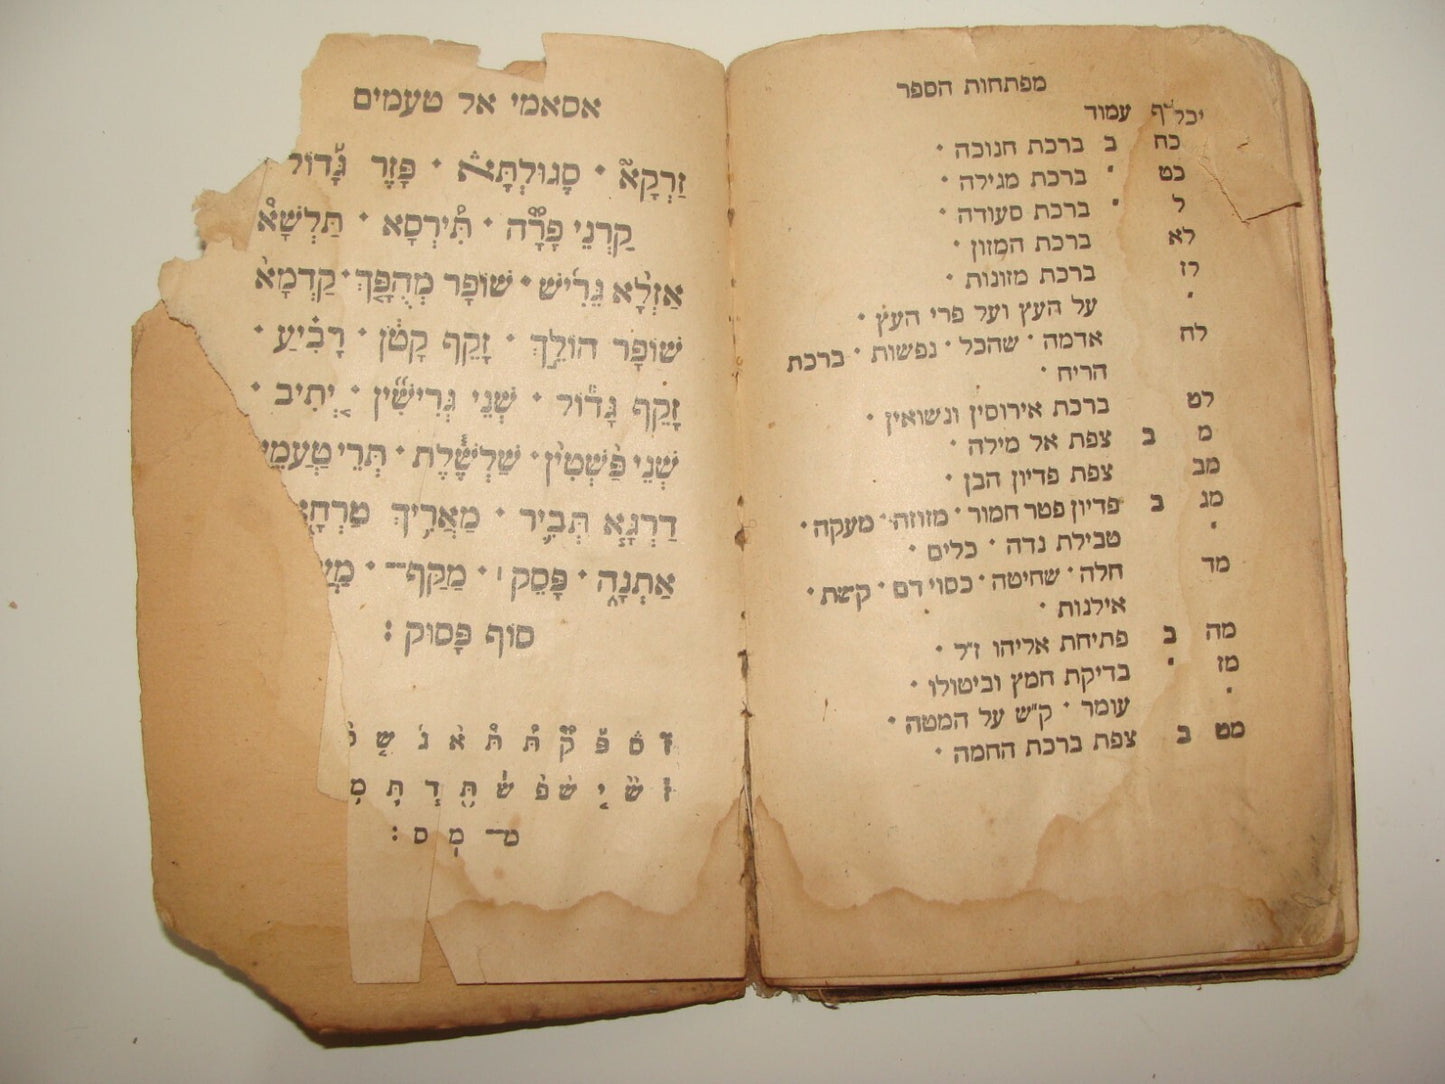 מפתחות הספר
עמוד
כח ב ברכת חנוכה ·
כט ' ברכת מגילה ·
ל ' ברכת סעודה ·
לא ברכת המזון ·
לז ברכת מזונות ·
' על העץ ועל פרי העץ ·
לח אדמה · שהכל · נפשות · ברכת
הריח ·
לט ברכת אירוסין ונשואין ·
מ ב צפת אל מילה ·
מב צפת פדיון הבן ·
מג ב פדיון פטר חמור · מזוזה · מעקה ·
' טבילת נדה · כלים ·
מד חלה · שחיטה · כסוי דם · קשת ·
אילנות ·
מה ב פתיחת אליהו ז״ל ·
מז ' בדיקת חמץ וביטולו ·
' עומר · ק״ש על המטה ·
מט ב צפת ברכת החמה ·
אסאמי אל טעמים
זַרְקָא֮ · סְגוּלְתָּא֒ · פָּזֶר גָּ֟דוֹל
קַרְנֵי פָרָ֟ה · תִּ֠ירְסָא · תַּלְשָׁא֩
אַזְלָ֨א גֵּרִ֜ישׁ · שׁוֹפָר מְהֻפָּ֤ךְ · קַדְמָא֨
שׁוֹפָר הוֹלֵ֣ךְ · זָקֵף קָטֹ֔ן · רָבִ֗יעַ ·
זָקֵף גָּד֕וֹל · שְׁנֵי גְּרִישִׁ֞ין · יְ֚תִיב ·
שְׁנֵי פַּ֙שְׁטִין֙ · שַׁלְשֶׁ֓לֶת · תְּרֵי
דַרְגָּ֧א תְּבִ֛יר · מַאֲרִ֥יךְ
אַתְנָ֑ה · פָּסֵק ׀ · מַקַּף־ ·
סוֹף פָּסוּק׃
ז ס פ ק ת ת א ג ש
ז ש י ש פ ש ת ד ת מ
מ־ מ ס :